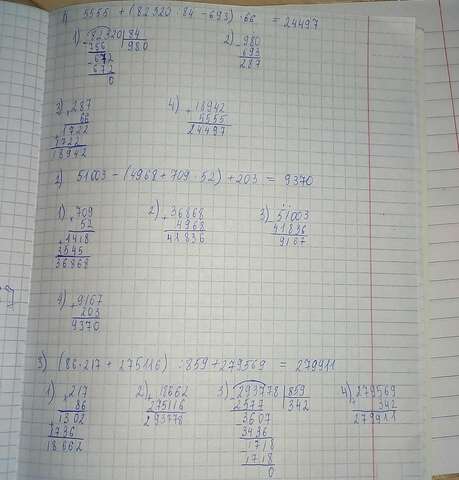 1) 5555 + (82320 : 84 - 693) · 66 = 24497
1) 82320 | 84
- 756 | 980
- 672
672
0
2) - 980
693
287
3) × 287
66
+ 1722
1722
18942
4) + 18942
5555
24497
2) 51003 - (4968 + 709 · 52) + 203 = 9370
1) × 709
52
+ 1418
3545
36868
2) + 36868
4968
41836
3) - 51003
41836
9167
4) + 9167
203
9370
3) (86 · 217 + 275116) : 859 + 279569 = 279911
1) × 217
86
+ 1302
1736
18662
2) + 18662
275116
293778
3) - 293778 | 859
2577 | 342
- 3607
3436
- 1718
1718
0
4) + 279569
342
279911